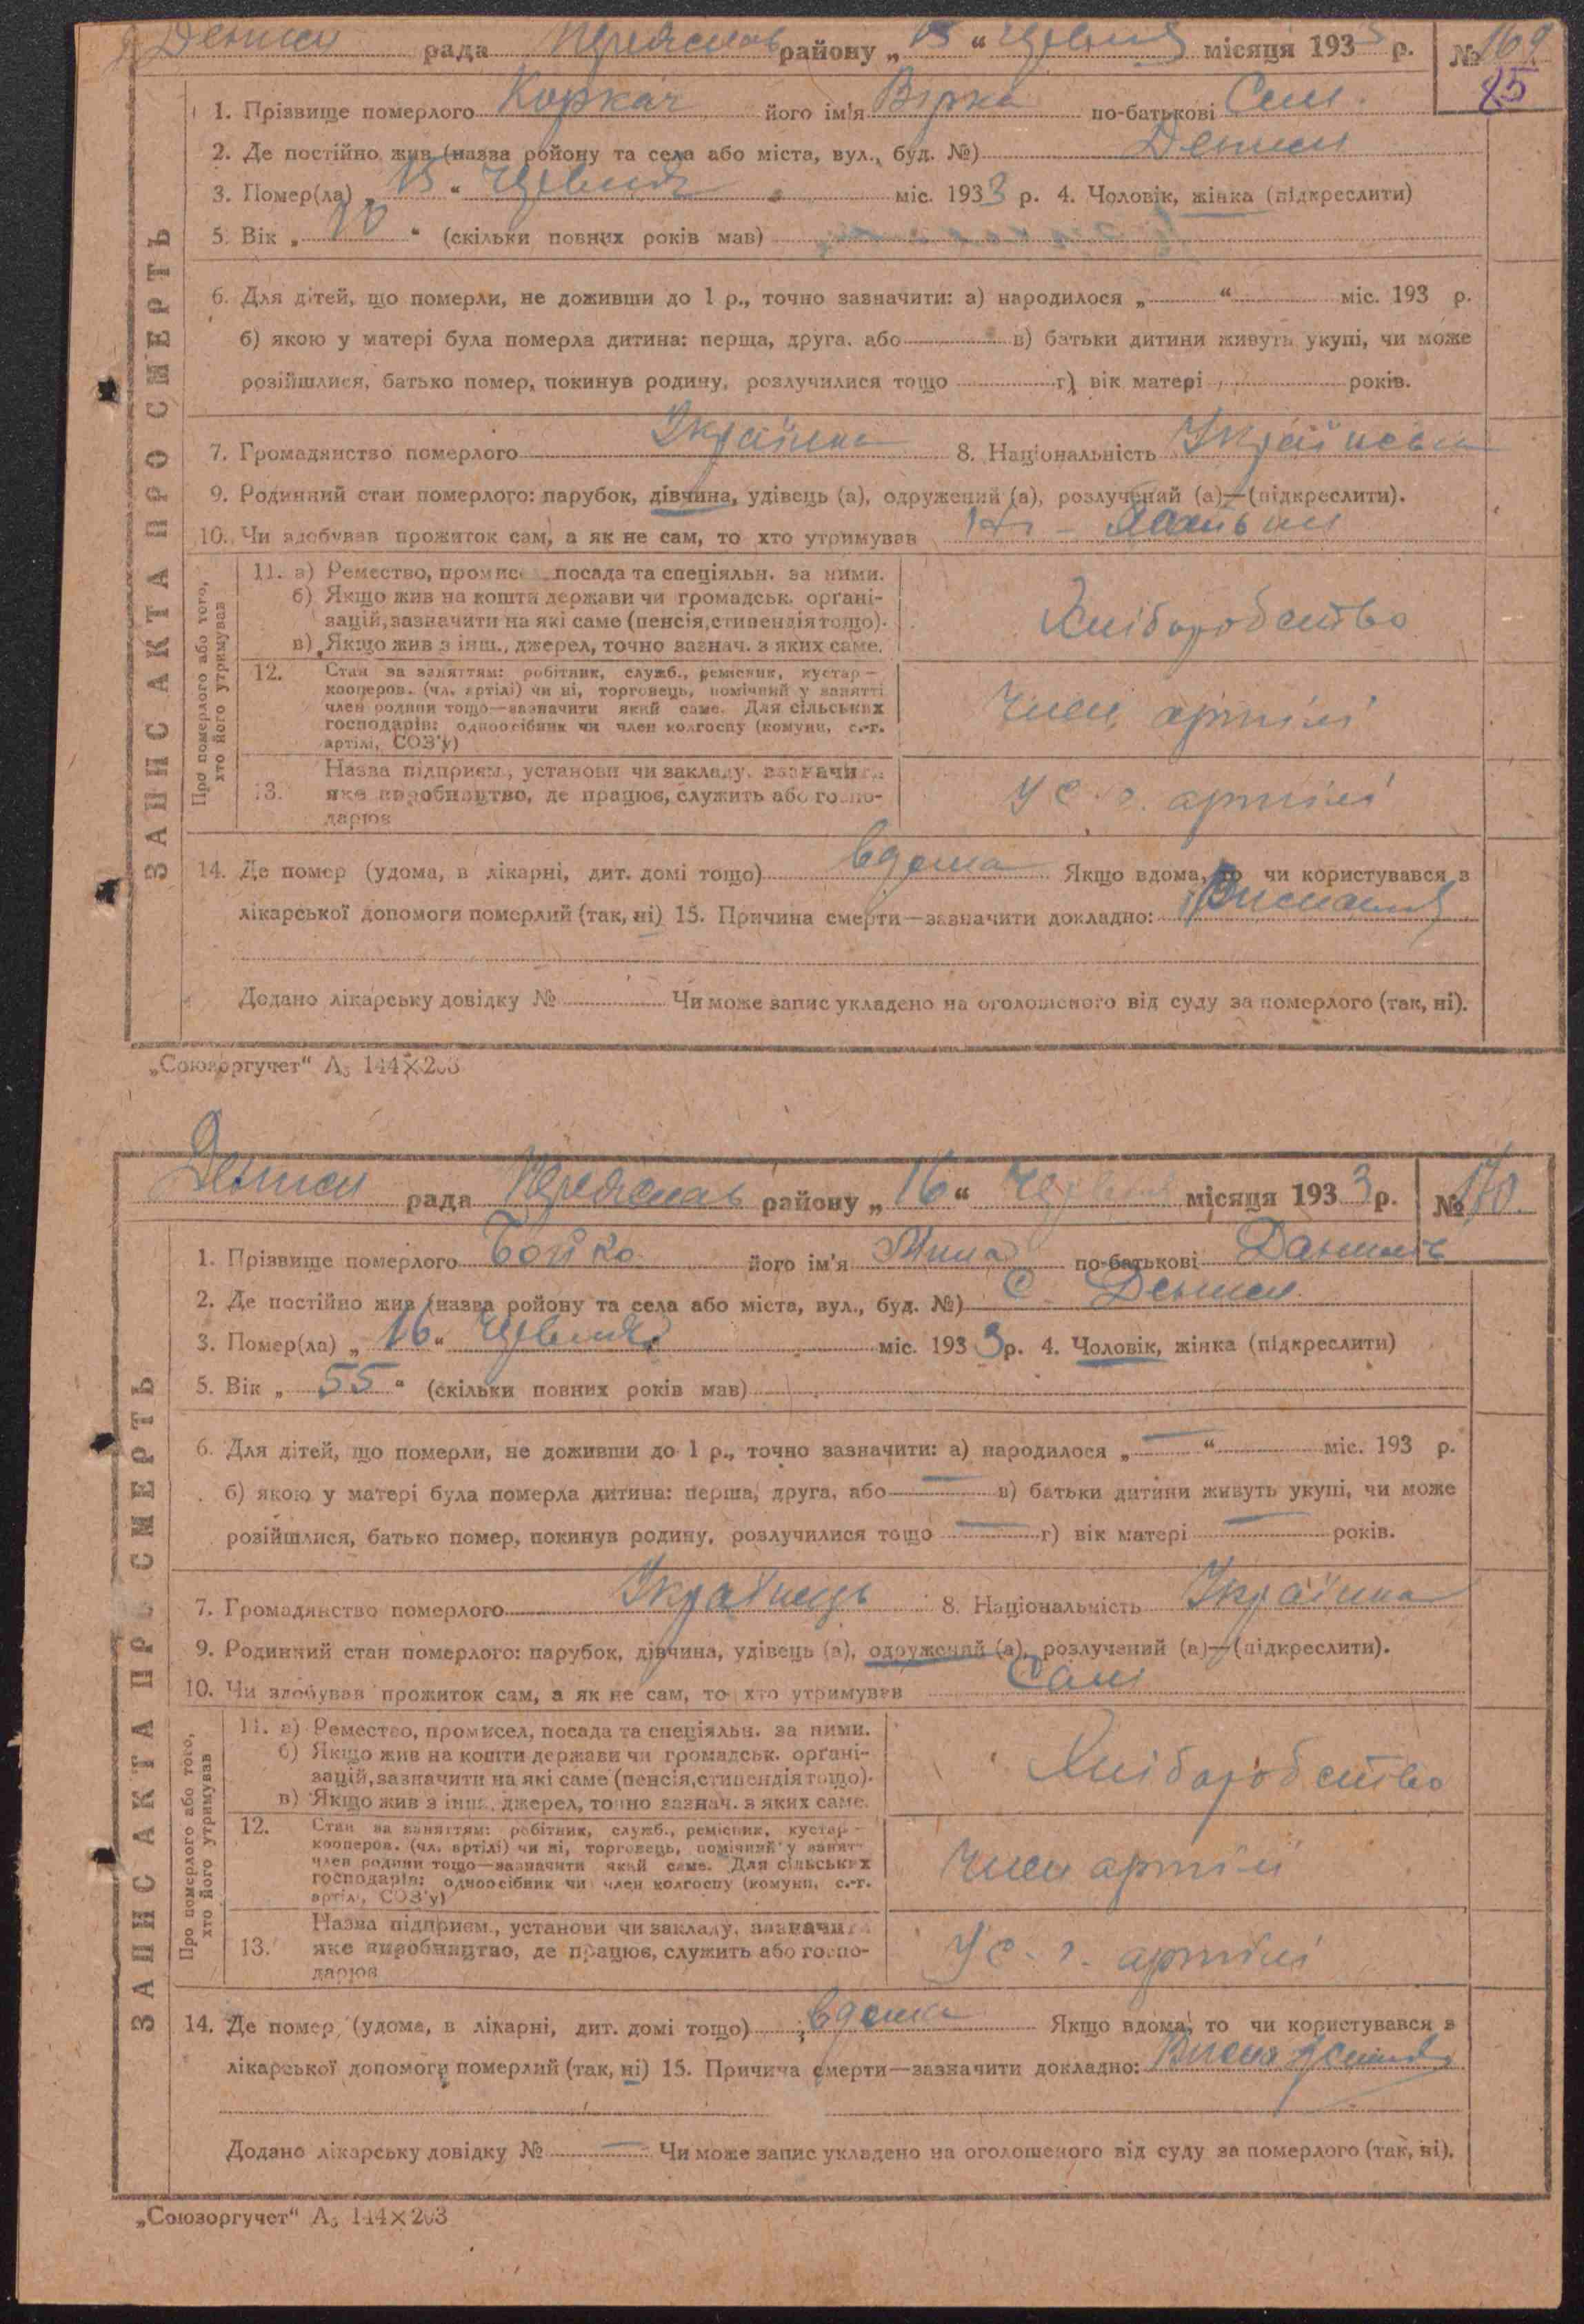 Дениси рада Переяслав району „15“ Червня місяця 1933 р. № 169
85
1. Прізвище померлого Коркач його ім'я Вірка по-батькові Сем.
2. Де постійно жив (назва ройону та села або міста, вул., буд. №) Дениси
3. Помер(ла) „15“ Червня міс. 1933 р. 4. Чоловік, жінка (підкреслити)
5. Вік „10“ (скільки повних років мав)
6. Для дітей, що померли, не доживши до 1 р., точно зазначити: а) народилося „ “ міс. 193 р.
б) якою у матері була померла дитина: перша, друга, або в) батьки дитини живуть укупі, чи може
розійшлися, батько помер, покинув родину, розлучилися тощо г) вік матері років.
7. Громадянство померлого Українка 8. Національність Українська
9. Родинний стан померлого: парубок, дівчина, удівець (а), одружений (а), розлучений (а)—(підкреслити).
10. Чи здобував прожиток сам, а як не сам, то хто утримував
ЗАПИС АКТА ПРО СМЕРТЬ
Про померлого або того, хто його утримував
11. а) Ремество, промисел, посада та спеціяльн. за ними.
б) Якщо жив на кошти держави чи громадськ. органі-
зацій, зазначити на які саме (пенсія, стипендія тощо).
в) Якщо жив з інш., джерел, точно зазнач. з яких саме.
Хліборобство
12. Стан за заняттям: робітник, служб., ремісник, кустар—
кооперов. (чл. артілі) чи ні, торговець, помічний у занятті
член родини тощо—зазначити який саме. Для сільських
господарів: одноосібник чи член колгоспу (комуни, с.-г.
артілі, СОЗ'у)
Член артілі
Назва підприєм., установи чи закладу, зазначити
13. яке виробництво, де працює, служить або госпо-
дарює
У с. г. артілі
14. Де помер (удома, в лікарні, дит. домі тощо) вдома Якщо вдома, то чи користувався з
лікарської допомоги померлий (так, ні) 15. Причина смерти—зазначити докладно:
Додано лікарську довідку № Чи може запис укладено на оголошеного від суду за померлого (так, ні).
„Союзоргучет“ А₅ 144×203
Дениси рада Переяслав району „16“ Червня місяця 1933 р. № 170
1. Прізвище померлого Бойко його ім'я Мина по-батькові Данилов
2. Де постійно жив (назва ройону та села або міста, вул., буд. №) С Дениси
3. Помер(ла) „16“ Червня міс. 1933 р. 4. Чоловік, жінка (підкреслити)
5. Вік „55“ (скільки повних років мав)
6. Для дітей, що померли, не доживши до 1 р., точно зазначити: а) народилося „—“ міс. 193 р.
б) якою у матері була померла дитина: перша, друга, або — в) батьки дитини живуть укупі, чи може
розійшлися, батько помер, покинув родину, розлучилися тощо — г) вік матері — років.
7. Громадянство померлого Українець 8. Національність Українка
9. Родинний стан померлого: парубок, дівчина, удівець (а), одружений (а), розлучений (а)—(підкреслити).
10. Чи здобував прожиток сам, а як не сам, то хто утримував Сам
ЗАПИС АКТА ПРО СМЕРТЬ
Про померлого або того, хто його утримував
11. а) Ремество, промисел, посада та спеціяльн. за ними.
б) Якщо жив на кошти держави чи громадськ. органі-
зацій, зазначити на які саме (пенсія, стипендія тощо).
в) Якщо жив з інш., джерел, точно зазнач. з яких саме.
Хліборобство
12. Стан за заняттям: робітник, служб., ремісник, кустар—
кооперов. (чл. артілі) чи ні, торговець, помічний у занятті
член родини тощо—зазначити який саме. Для сільських
господарів: одноосібник чи член колгоспу (комуни, с.-г.
артілі, СОЗ'у)
Член артілі
Назва підприєм., установи чи закладу, зазначити
13. яке виробництво, де працює, служить або госпо-
дарює
У с. г. артілі
14. Де помер (удома, в лікарні, дит. домі тощо) вдома Якщо вдома, то чи користувався з
лікарської допомоги померлий (так, ні) 15. Причина смерти—зазначити докладно:
Додано лікарську довідку № — Чи може запис укладено на оголошеного від суду за померлого (так, ні).
„Союзоргучет“ А₅ 144×203